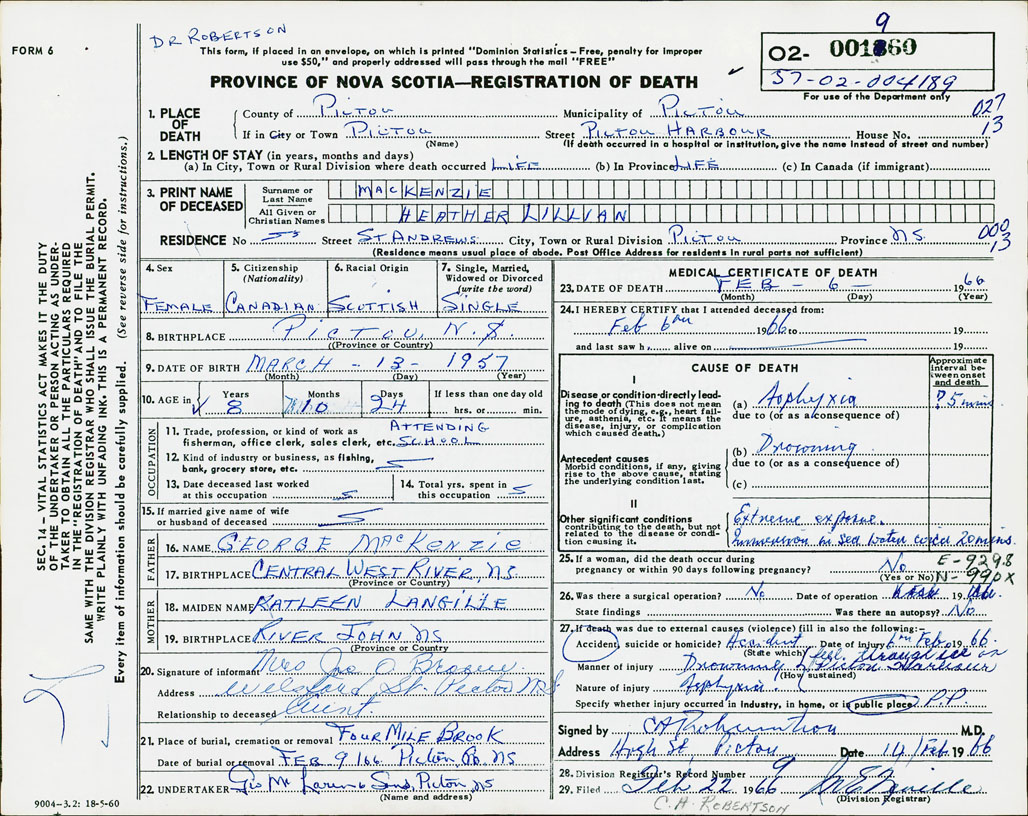 9
FORM 6
DR ROBERTSON
This form, if placed in an envelope, on which is printed "Dominion Statistics – Free, penalty for improper
use $50," and properly addressed will pass through the mail "FREE"
O2- 001860
57-02-004189
For use of the Department only
PROVINCE OF NOVA SCOTIA—REGISTRATION OF DEATH
1. PLACE OF DEATH
County of PICTOU Municipality of PICTOU 027
If in City or Town PICTOU Street PICTOU HARBOUR House No. 13
(Name) (If death occurred in a hospital or institution, give the name instead of street and number)
2. LENGTH OF STAY (in years, months and days)
(a) In City, Town or Rural Division where death occurred LIFE (b) In Province LIFE (c) In Canada (if immigrant)
3. PRINT NAME OF DECEASED
Surname or Last Name MACKENZIE
All Given or Christian Names HEATHER LILLIAN
RESIDENCE No Street ST ANDREWS City, Town or Rural Division PICTOU Province NS. 000 13
(Residence means usual place of abode. Post Office Address for residents in rural parts not sufficient)
SEC. 14 – VITAL STATISTICS ACT MAKES IT THE DUTY
OF THE UNDERTAKER OR PERSON ACTING AS UNDER-
TAKER TO OBTAIN ALL THE PARTICULARS REQUIRED
IN THE "REGISTRATION OF DEATH" AND TO FILE THE
SAME WITH THE DIVISION REGISTRAR WHO SHALL ISSUE THE BURIAL PERMIT.
WRITE PLAINLY WITH UNFADING INK. THIS IS A PERMANENT RECORD.
Every item of information should be carefully supplied. (See reverse side for instructions.)
4. Sex FEMALE
5. Citizenship (Nationality) CANADIAN
6. Racial Origin SCOTTISH
7. Single, Married, Widowed or Divorced (write the word) SINGLE
8. BIRTHPLACE PICTOU, N.S
(Province or Country)
9. DATE OF BIRTH MARCH - 13 - 1957
(Month) (Day) (Year)
10. AGE in Years 8 Months 10 Days 24 If less than one day old hrs. or min.
OCCUPATION
11. Trade, profession, or kind of work as ATTENDING
fisherman, office clerk, sales clerk, etc. SCHOOL
12. Kind of industry or business, as fishing,
bank, grocery store, etc.
13. Date deceased last worked at this occupation
14. Total yrs. spent in this occupation
15. If married give name of wife
or husband of deceased
FATHER
16. NAME GEORGE MACKENZIE
17. BIRTHPLACE CENTRAL WEST RIVER, NS
(Province or Country)
MOTHER
18. MAIDEN NAME KATLEEN LANGILLE
19. BIRTHPLACE RIVER JOHN NS
(Province or Country)
20. Signature of informant Mrs Jas O
Address Welsford St. Pictou NS
Relationship to deceased Aunt.
21. Place of burial, cremation or removal FOUR MILE BROOK
Date of burial or removal FEB 9 1966 Pictou, Co. NS
22. UNDERTAKER Geo McLaren & Sons, Pictou NS
(Name and address)
9004–3.2: 18-5-60
MEDICAL CERTIFICATE OF DEATH
23. DATE OF DEATH FEB - 6 - 1966
(Month) (Day) (Year)
24. I HEREBY CERTIFY that I attended deceased from:
Feb 6th 1966 to 19
and last saw h alive on 19
CAUSE OF DEATH
Approximate interval between onset and death
I
Disease or condition directly leading to death (This does not mean the mode of dying, e.g., heart failure, asthenia, etc. It means the disease, injury, or complication which caused death.)
(a) Asphyxia ? 5 mins
due to (or as a consequence of)
Antecedent causes
Morbid conditions, if any, giving rise to the above cause, stating the underlying condition last.
(b) Drowning
due to (or as a consequence of)
(c)
II
Other significant conditions
contributing to the death, but not related to the disease or condition causing it.
Extreme exposure.
Immersion in sea water circa 20 mins.
25. If a woman, did the death occur during
pregnancy or within 90 days following pregnancy? No
(Yes or No)
E-929.8
N-990X
26. Was there a surgical operation? No Date of operation 19
State findings Was there an autopsy? No
27. If death was due to external causes (violence) fill in also the following:–
Accident, suicide or homicide? Accident Date of injury 6th Feb. 1966.
(State which)
Manner of injury Drowning (fell through ice in Pictou Harbour
(How sustained)
Nature of injury Asphyxia.
Specify whether injury occurred in industry, in home, or in public place P.P.
Signed by M.D.
Address High St Pictou Date 10/Feb 1966
28. Division Registrar's Record Number 9
29. Filed Feb 22 1966
(Division Registrar)
C. H. ROBERTSON